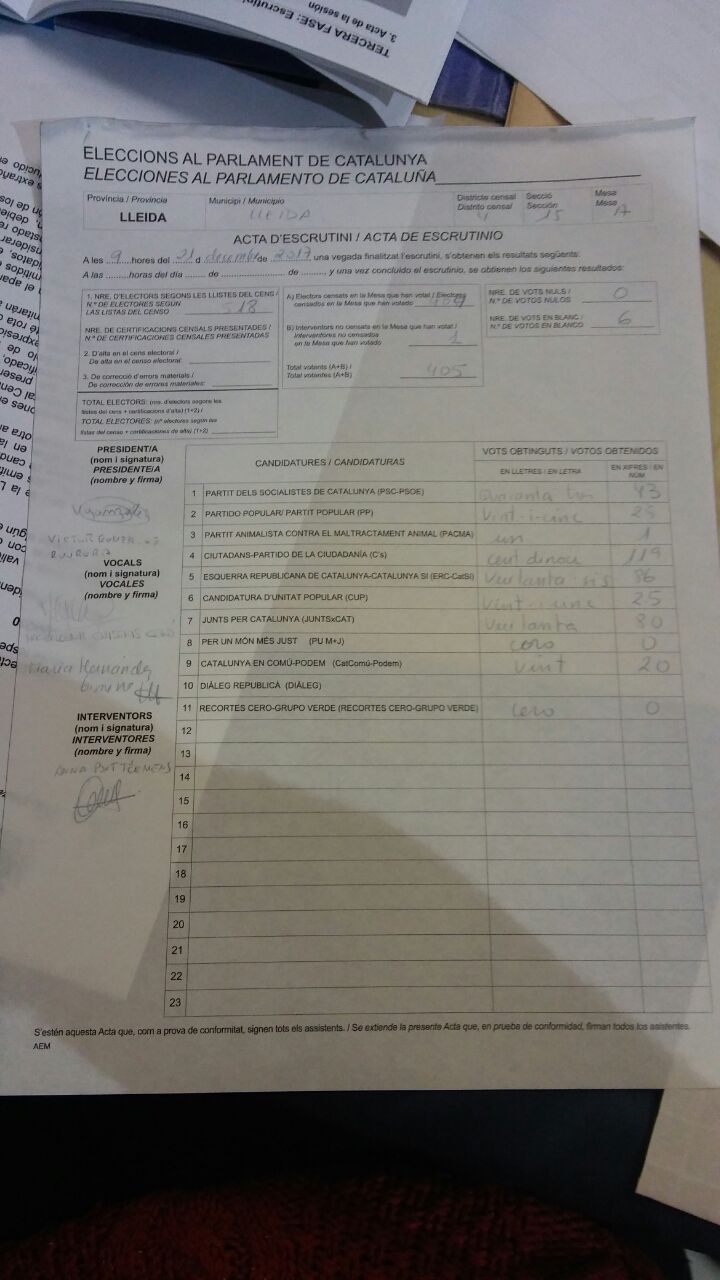 TERCERA FASE: Escrutini
3. Acta de la sesión
ELECCIONS AL PARLAMENT DE CATALUNYA
ELECCIONES AL PARLAMENTO DE CATALUÑA
Província / Provincia
LLEIDA
Municipi / Municipio
LLEIDA
Districte censal
Distrito censal 4
Secció
Sección 15
Mesa
Mesa A
ACTA D'ESCRUTINI / ACTA DE ESCRUTINIO
A les 9 hores del 21 d desembre de 2017, una vegada finalitzat l'escrutini, s'obtenen els resultats següents:
A las ........ horas del día ...... de ........................ de ........., y una vez concluido el escrutinio, se obtienen los siguientes resultados:
1. NRE. D'ELECTORS SEGONS LES LLISTES DEL CENS /
N.º DE ELECTORES SEGÚN
LAS LISTAS DEL CENSO 518
NRE. DE CERTIFICACIONS CENSALS PRESENTADES /
N.º DE CERTIFICACIONES CENSALES PRESENTADAS
2. D'alta en el cens electoral /
De alta en el censo electoral:
3. De correcció d'errors materials /
De corrección de errores materiales:
TOTAL ELECTORS: (nre. d'electors segons les
llistes del cens + certificacions d'alta) (1+2) /
TOTAL ELECTORES: (nº electores según las
listas del censo + certificaciones de alta) (1+2)
A) Electors censats en la Mesa que han votat / Electores
censados en la Mesa que han votado 404
B) Interventors no censats en la Mesa que han votat /
Interventores no censados
en la Mesa que han votado 1
Total votants (A+B) /
Total votantes (A+B) 405
NRE. DE VOTS NULS /
N.º DE VOTOS NULOS 0
NRE. DE VOTS EN BLANC /
N.º DE VOTOS EN BLANCO 6
PRESIDENT/A
(nom i signatura)
PRESIDENTE/A
(nombre y firma)
VOCALS
(nom i signatura)
VOCALES
(nombre y firma)
Maria Hernández
INTERVENTORS
(nom i signatura)
INTERVENTORES
(nombre y firma)
ANNA
CANDIDATURES / CANDIDATURAS
VOTS OBTINGUTS / VOTOS OBTENIDOS
EN LLETRES / EN LETRA
EN XIFRES / EN NÚM
1 PARTIT DELS SOCIALISTES DE CATALUNYA (PSC-PSOE) Quaranta tres 43
2 PARTIDO POPULAR/ PARTIT POPULAR (PP) Vint-i-cinc 25
3 PARTIT ANIMALISTA CONTRA EL MALTRACTAMENT ANIMAL (PACMA) un 1
4 CIUTADANS-PARTIDO DE LA CIUDADANÍA (C's) cent dinou 119
5 ESQUERRA REPUBLICANA DE CATALUNYA-CATALUNYA SÍ (ERC-CatSí) Vuitanta sis 86
6 CANDIDATURA D'UNITAT POPULAR (CUP) Vint-i-cinc 25
7 JUNTS PER CATALUNYA (JUNTSxCAT) Vuitanta 80
8 PER UN MÓN MÉS JUST (PU M+J) cero 0
9 CATALUNYA EN COMÚ-PODEM (CatComú-Podem) vint 20
10 DIÀLEG REPUBLICÀ (DIÀLEG)
11 RECORTES CERO-GRUPO VERDE (RECORTES CERO-GRUPO VERDE) cero 0
12
13
14
15
16
17
18
19
20
21
22
23
S'estén aquesta Acta que, com a prova de conformitat, signen tots els assistents. / Se extiende la presente Acta que, en prueba de conformidad, firman todos los asistentes.
AEM